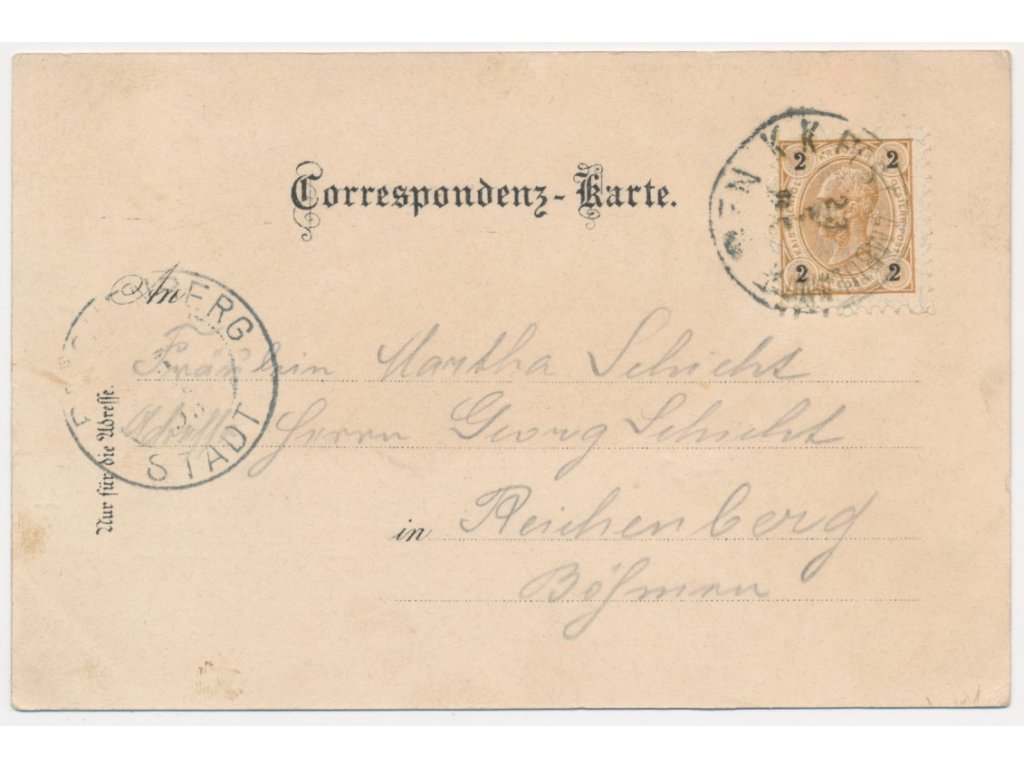 Correspondenz-Karte.
2 2
2 2
An
Fräulein Martha Schicht
Herrn Georg Schicht
in Reichenberg
Böhmen
Nur für die Adresse.
BERG
STADT
K.K.